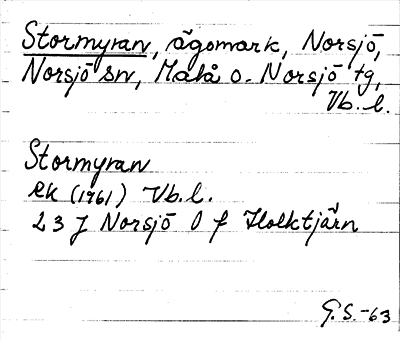 Stormyran, ägomark, Norsjö,
Norsjö sn, Malå o. Norsjö tg,
Vb. l.
Stormyran
ek (1961) Vb. l.
23 J Norsjö 0 f Holktjärn
G.S.-63